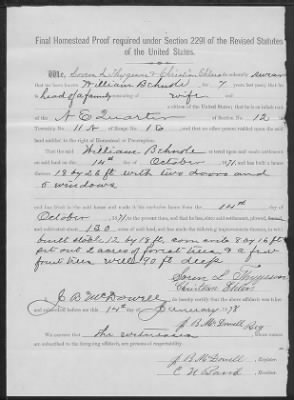 Final Homestead Proof required under Section 2291 of the Revised Statutes
of the United States.
We, Soren L Thygeson & Christian do solemnly swear
that we have known William Bchnole for 7 years last past; that he
is head of a family consisting of wife
a citizen of the United States; that he is an inhabitant
of the N E Quarter of Section No. 12
Township No. 11 N of Range No. 16 and that no other person resided upon the said
land entitled to the right of Homestead or Pre-emption;
That the said William Bchnole entered upon and made settlement
on said land on the 14th day of October 1871 and has built a house
thereon 18 by 26 ft with two doors and
5 windows
and has lived in the said house and made it his exclusive home from the 14th day of
October 1871 to the present time, and that he has, since said settlement, plowed,
and cultivated about 120 acres of said land, and has made the following improvements thereon, to wit:
built stable 12 by 18 ft, corn crib 8 by 16 ft
set out 2 acres of forest trees & a few
fruit trees well 90 ft deep
Soren L Thygeson
Christian
I, J. B. McDowell do hereby certify that the above affidavit was taken
and subscribed before me this 14th day of January 1878
J B McDowell Reg
We certify that the witnesses whose names
are subscribed to the foregoing affidavit, are persons of respectability.
J B McDowell, Register.
, Receiver.